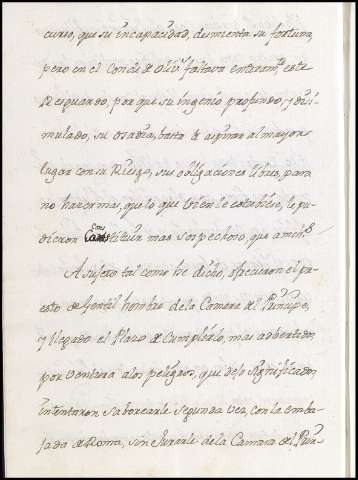 curio, que su incapacidad, dumienta su fortuna,
pero en el Conde de Oliv.s faltava enteram.te este
Resguardo, por que su ingenio profundo, y disi-
mulado, su osadia, hasta de aspirar al mayor
lugar con su Riesgo, sus obligaciones libres, para
no hazer mas, que lo que bien le estubiese, le pu-
dieron Constituir mas sospechoso, que amih.
A sujeto tal como he dicho, ofrecieron el pu-
esto de Gentil hombre de la Camara del Principe,
y llegado el Plazo de Cumplirlo, mas advertido,
por ventura a los peligros, que de lo significado,
intentaron saborearle segunda vez, con la emba-
jada de Roma, sin Jurarle de la Camara del Prin-